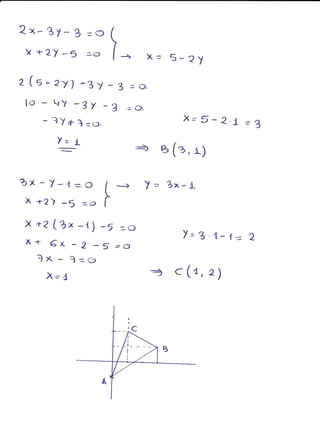 2x-3y-3=0
x+2y-5=0 } → x= 5-2y
2(5-2y)-3y-3=0
10-4y-3y-3=0
-7y+7=0 x=5-2·1=3
y=1 ⇒ B(3,1)
3x-y-1=0 } → y= 3x-1
x+2y-5=0
x+2(3x-1)-5=0
x+6x-2-5=0 y=3·1-1=2
7x-7=0
x=1 ⇒ C(1,2)
C
B
A